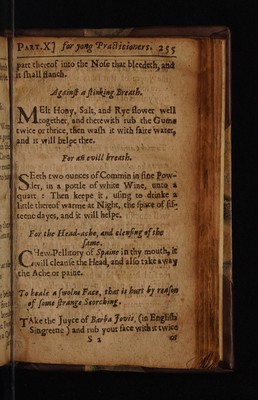 PART.X] for yong Practicioners. 255
part thereof into the Nose that bleedeth, and
it shall stanch.
Against a stinking Breath.
MElt Hony, Salt, and Rye flower well
together, and therewith rub the Gums
twice or thrice, then wash it with faire water,
and it will helpe thee.
For an evill breath.
SEeth two ounces of Commin in fine Pow-
der, in a pottle of white Wine, unto a
quart : Then keepe it, using to drinke a
little thereof warme at Night, the space of fif-
teene dayes, and it will helpe.
For the Head-ache, and clensing of the
same.
CHew Pellitory of Spaine in thy mouth, it
will cleanse the Head, and also take away
the Ache or paine.
To heale a swolne Face, that is hurt by reason
of some strange Scorching.
TAke the Juyce of Barba Jovis, (in English
Singreene) and rub your face with it twice
S 2 or